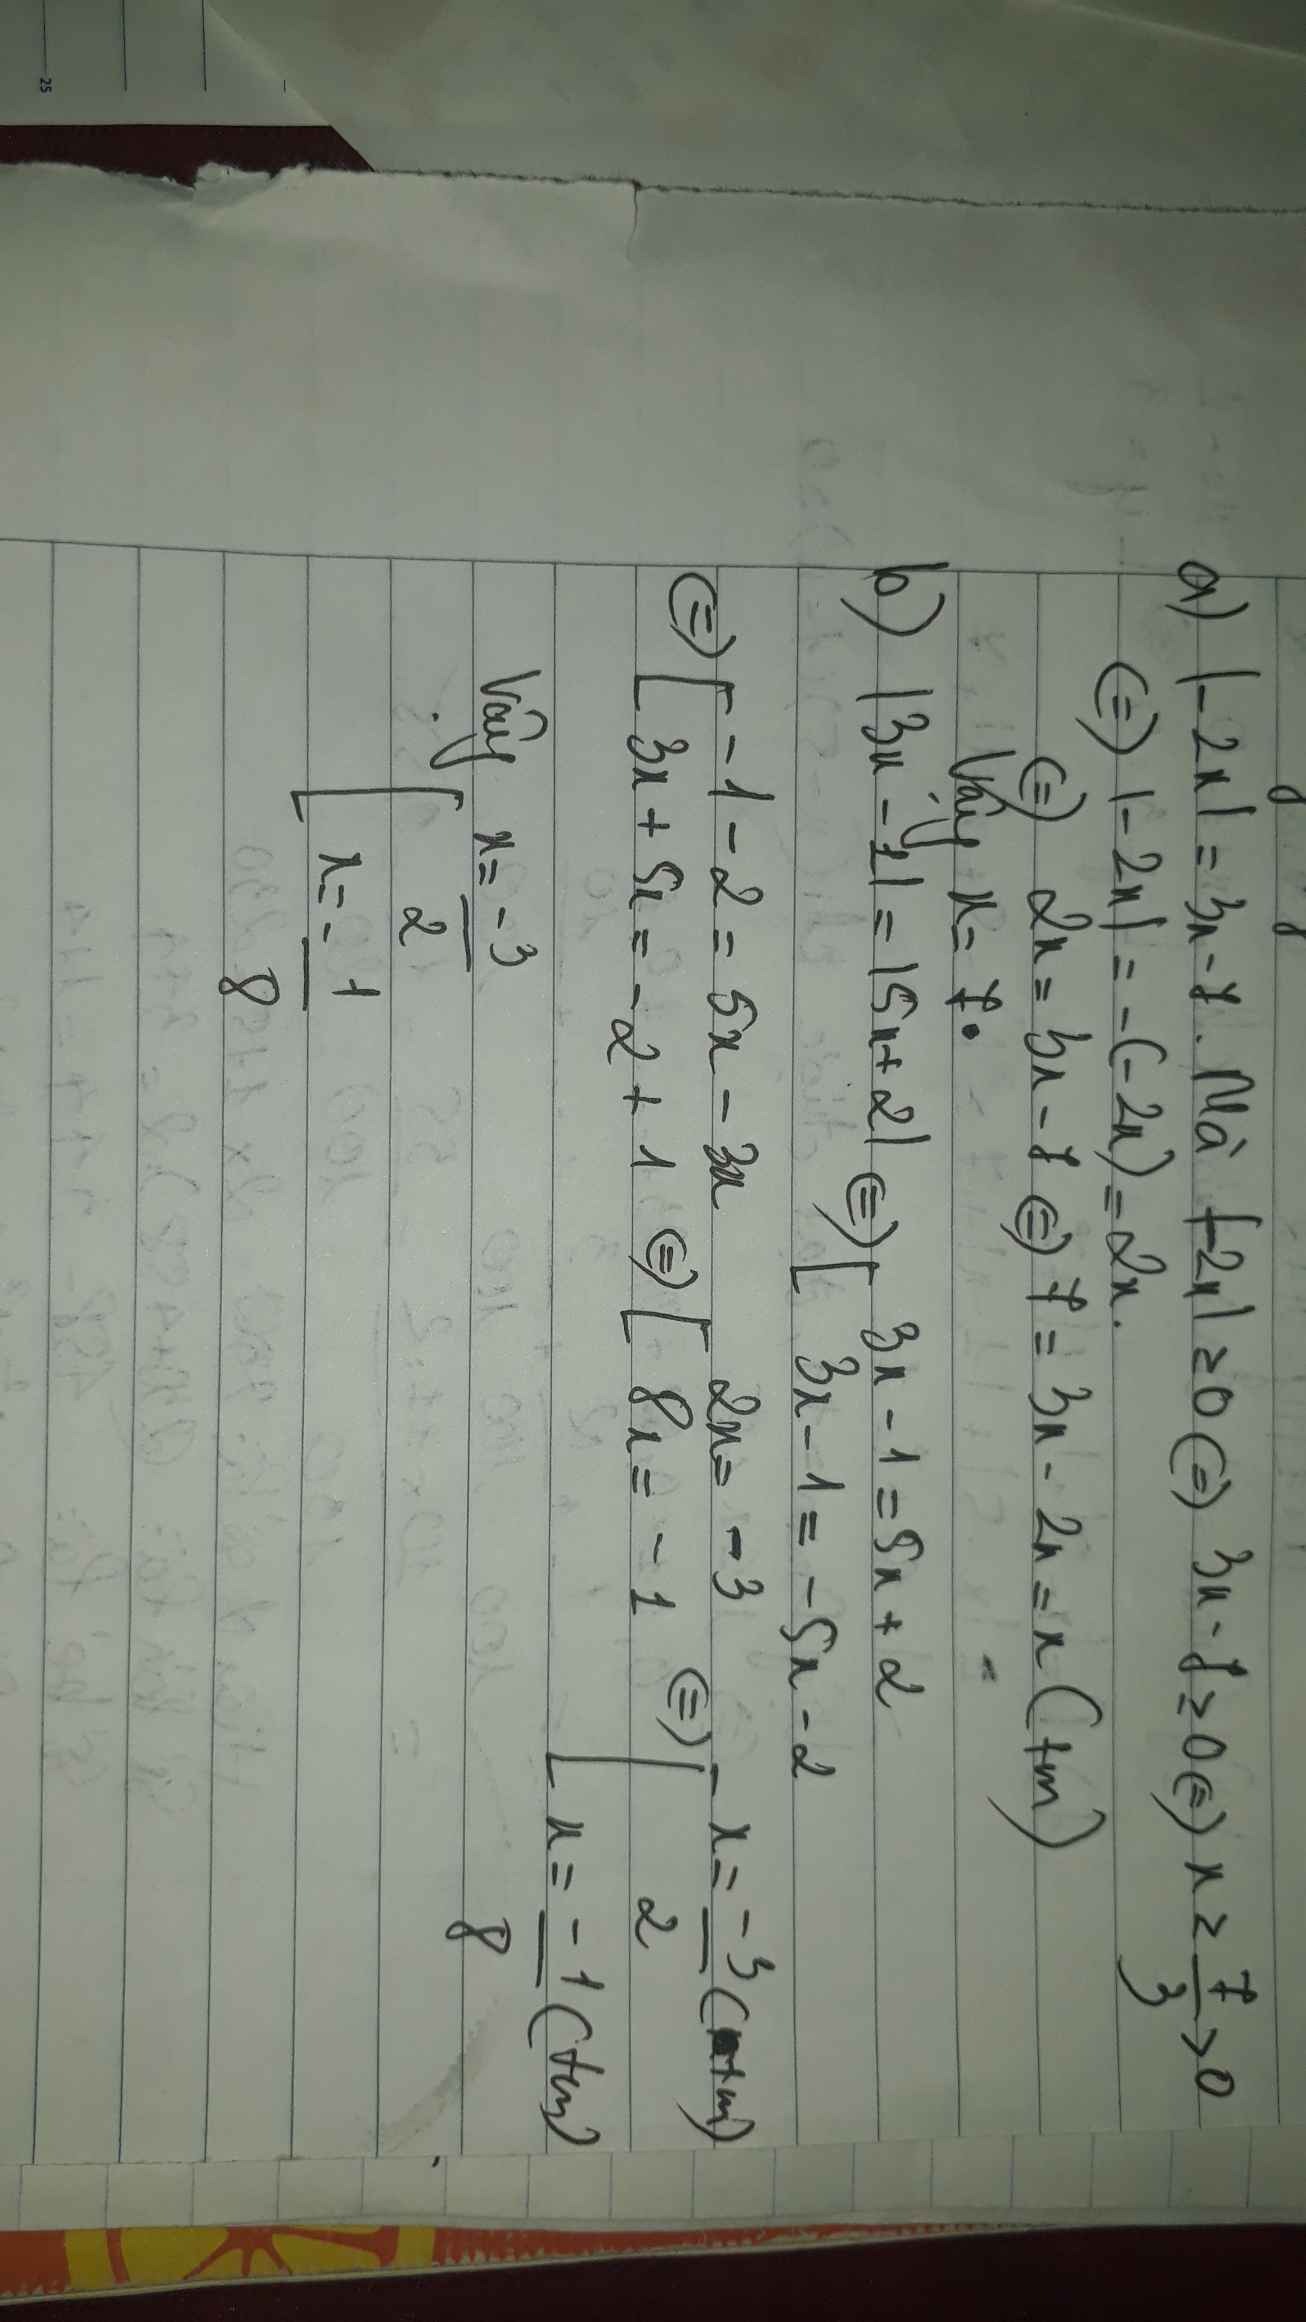 a) |-2x| = 3x - 7. Mà |-2x| ≥ 0 (=) 3x - 7 ≥ 0 (=) x ≥ 7/3 > 0
(=) |-2x| = -(-2x) = 2x.
(=) 2x = 3x - 7 (=) 7 = 3x - 2x = x (tm)
Vậy x = 7.
b) |3x - 1| = |5x + 2| (=) [ 3x - 1 = 5x + 2
[ 3x - 1 = -5x - 2
(=) [ -1 - 2 = 5x - 3x
[ 3x + 5x = -2 + 1 (=) [ 2x = -3
[ 8x = -1 (=) [ x = -3/2 (tm)
[ x = -1/8 (tm)
Vậy [ x = -3/2
[ x = -1/8
25